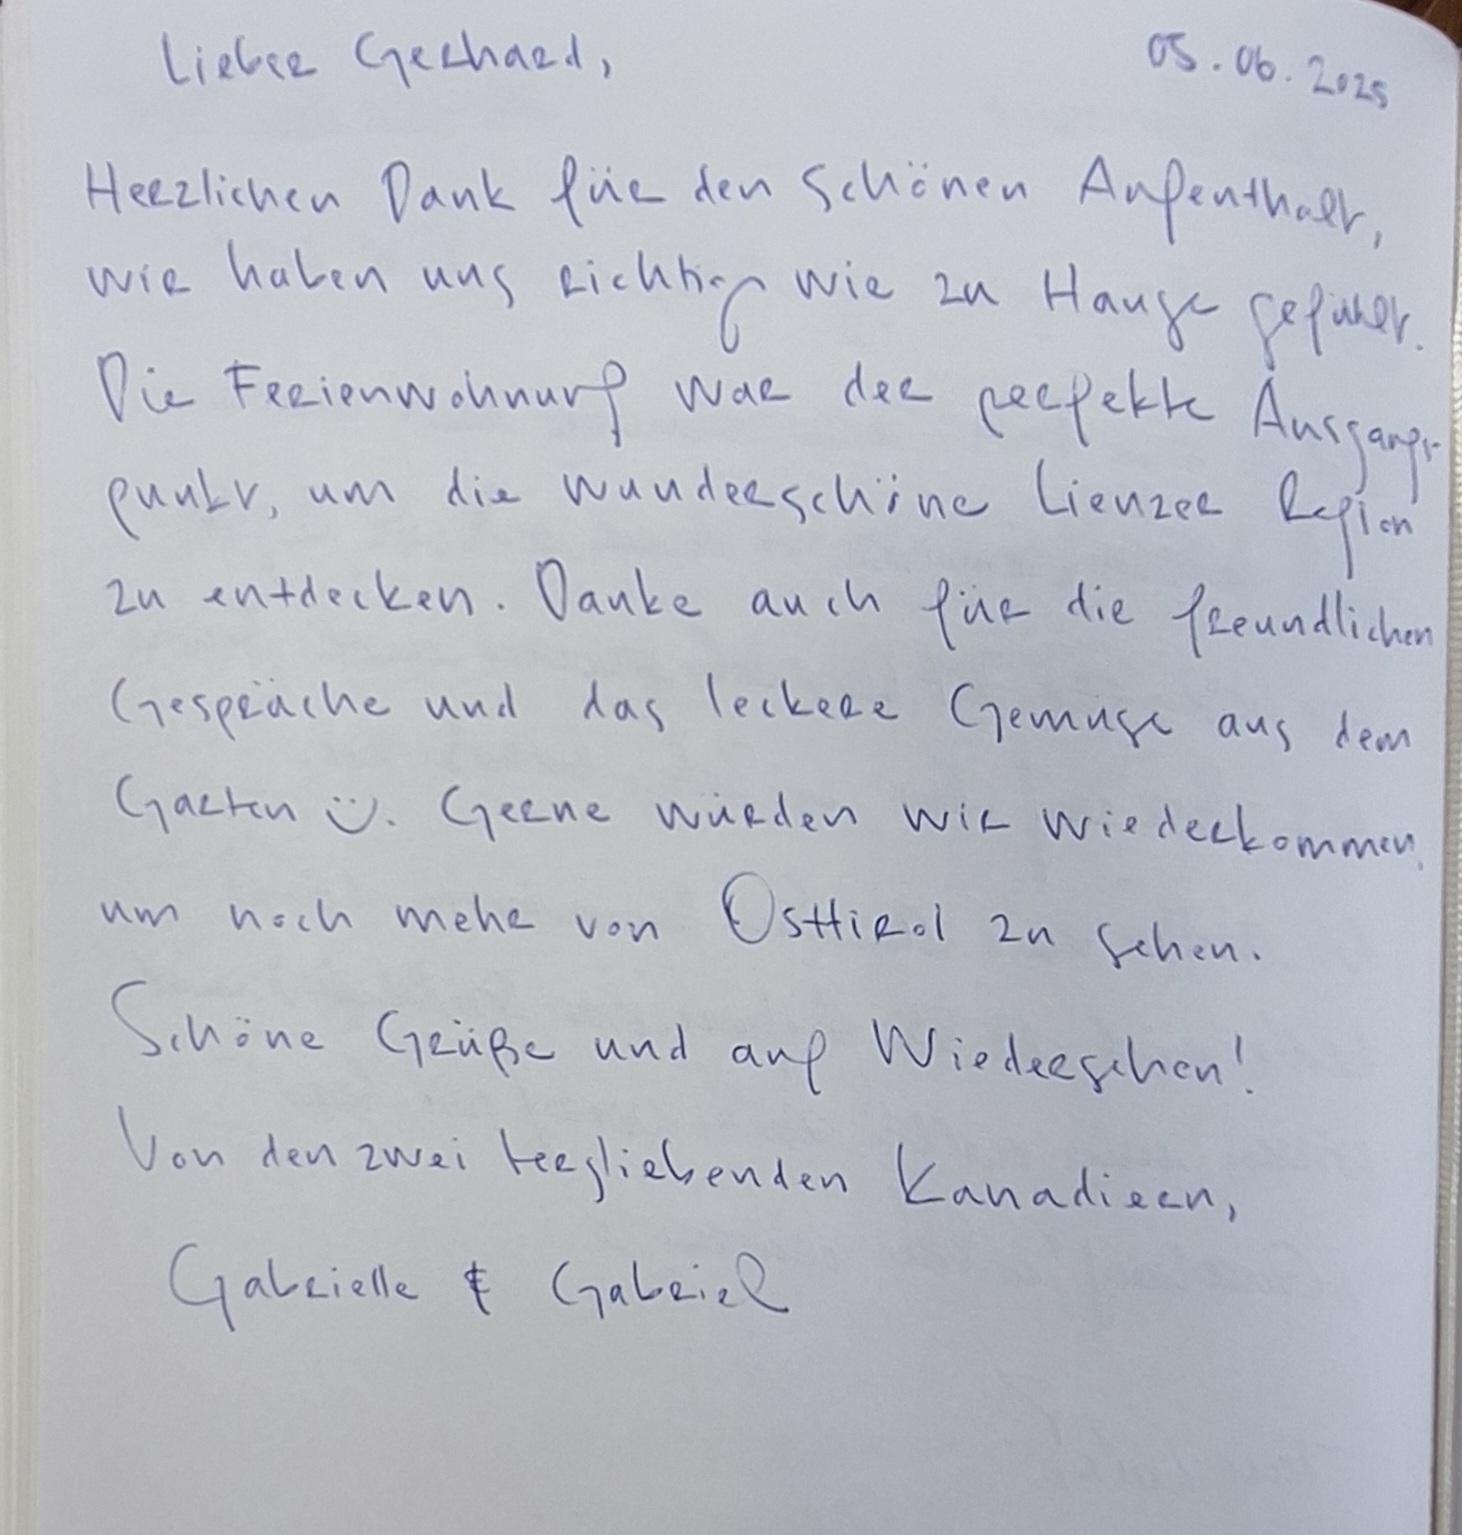 Lieber Gerhard, 05.06.2025
Herzlichen Dank für den schönen Aufenthalt,
wir haben uns richtig wie zu Hause gefühlt.
Die Ferienwohnung war der perfekte Ausgangs-
punkt, um die wunderschöne Lienzer Region
zu entdecken. Danke auch für die freundlichen
Gespräche und das leckere Gemüse aus dem
Garten ü. Gerne würden wir wiederkommen,
um noch mehr von Osttirol zu sehen.
Schöne Grüße und auf Wiedersehen!
Von den zwei tierliebenden Kanadiern,
Gabrielle & Gabriel